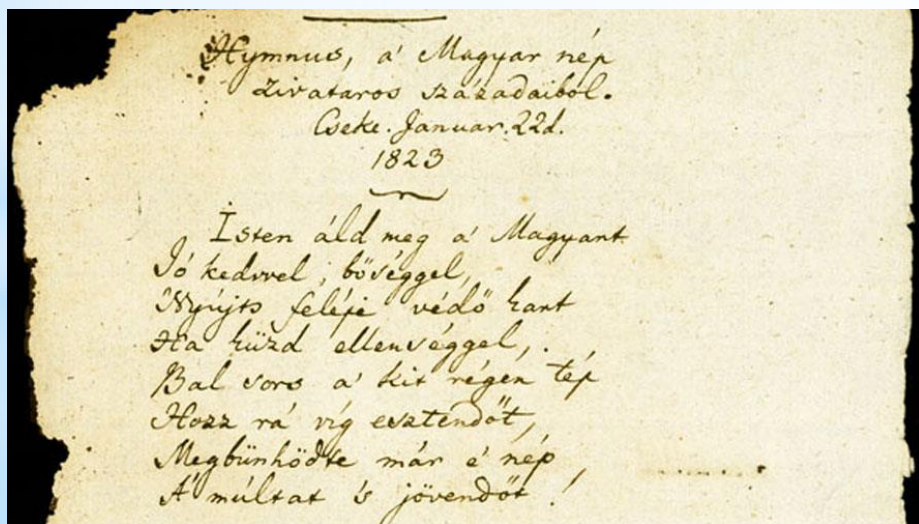 Hymnus, a' Magyar nép
zivataros századaiból.
Cseke. Januar. 22d.
1823
Isten áld meg a' Magyart
Jó kedvvel, bőséggel,
Nyújts feléje védő kart
Ha küzd ellenséggel,
Bal sors a' kit régen tép
Hozz rá víg esztendőt,
Megbűnhödte már e' nép
A' múltat 's jövendőt!